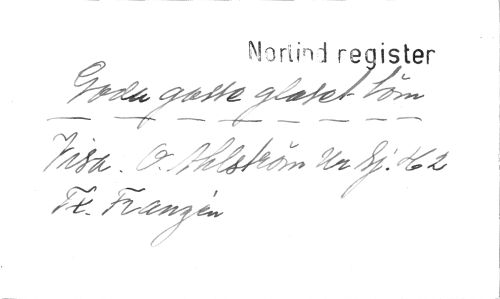 Norlind register
Goda gosse glaset töm
Visa. O. Ahlström Ur Sj. H 2
Tx. Franzén